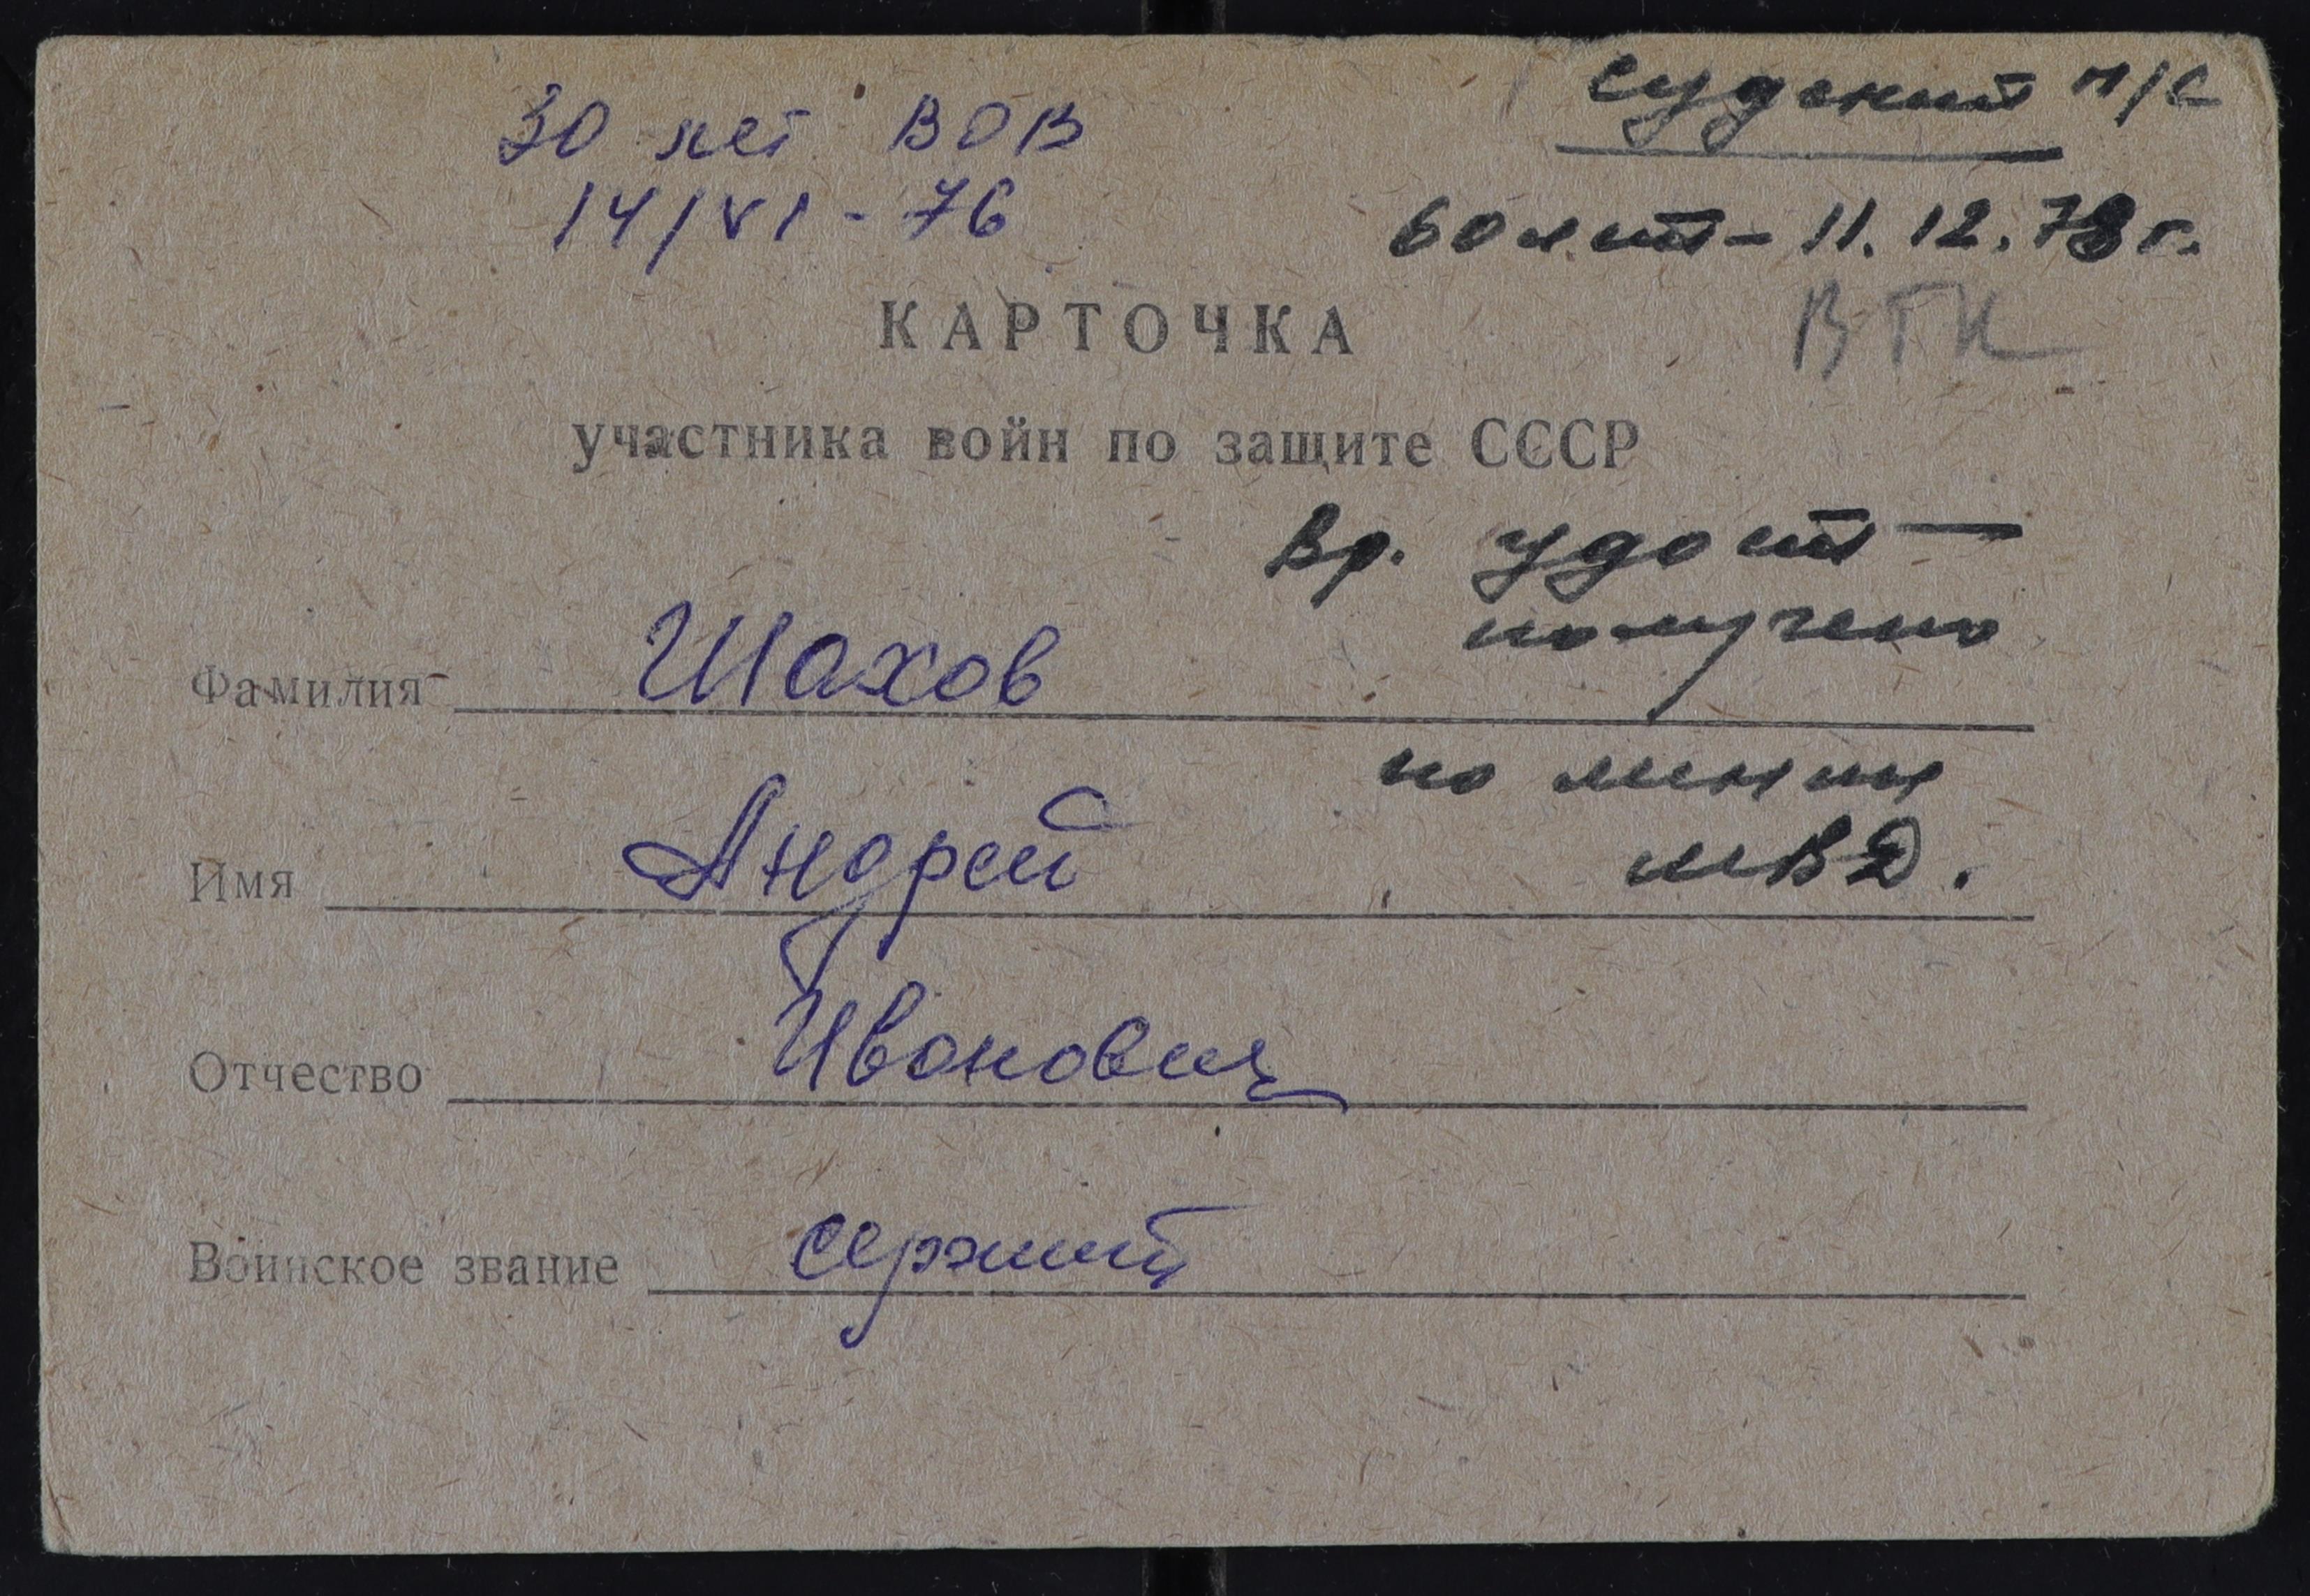 Судский п/с
30 лет ВОВ
60 лет - 11.12.78 г.
14/VI - 76
ВТК
КАРТОЧКА
участника войн по защите СССР
Вр. удост -
получено
Фамилия Шахов
по линии
МВД.
Имя Андрей
Отчество Иванович
Воинское звание сержант